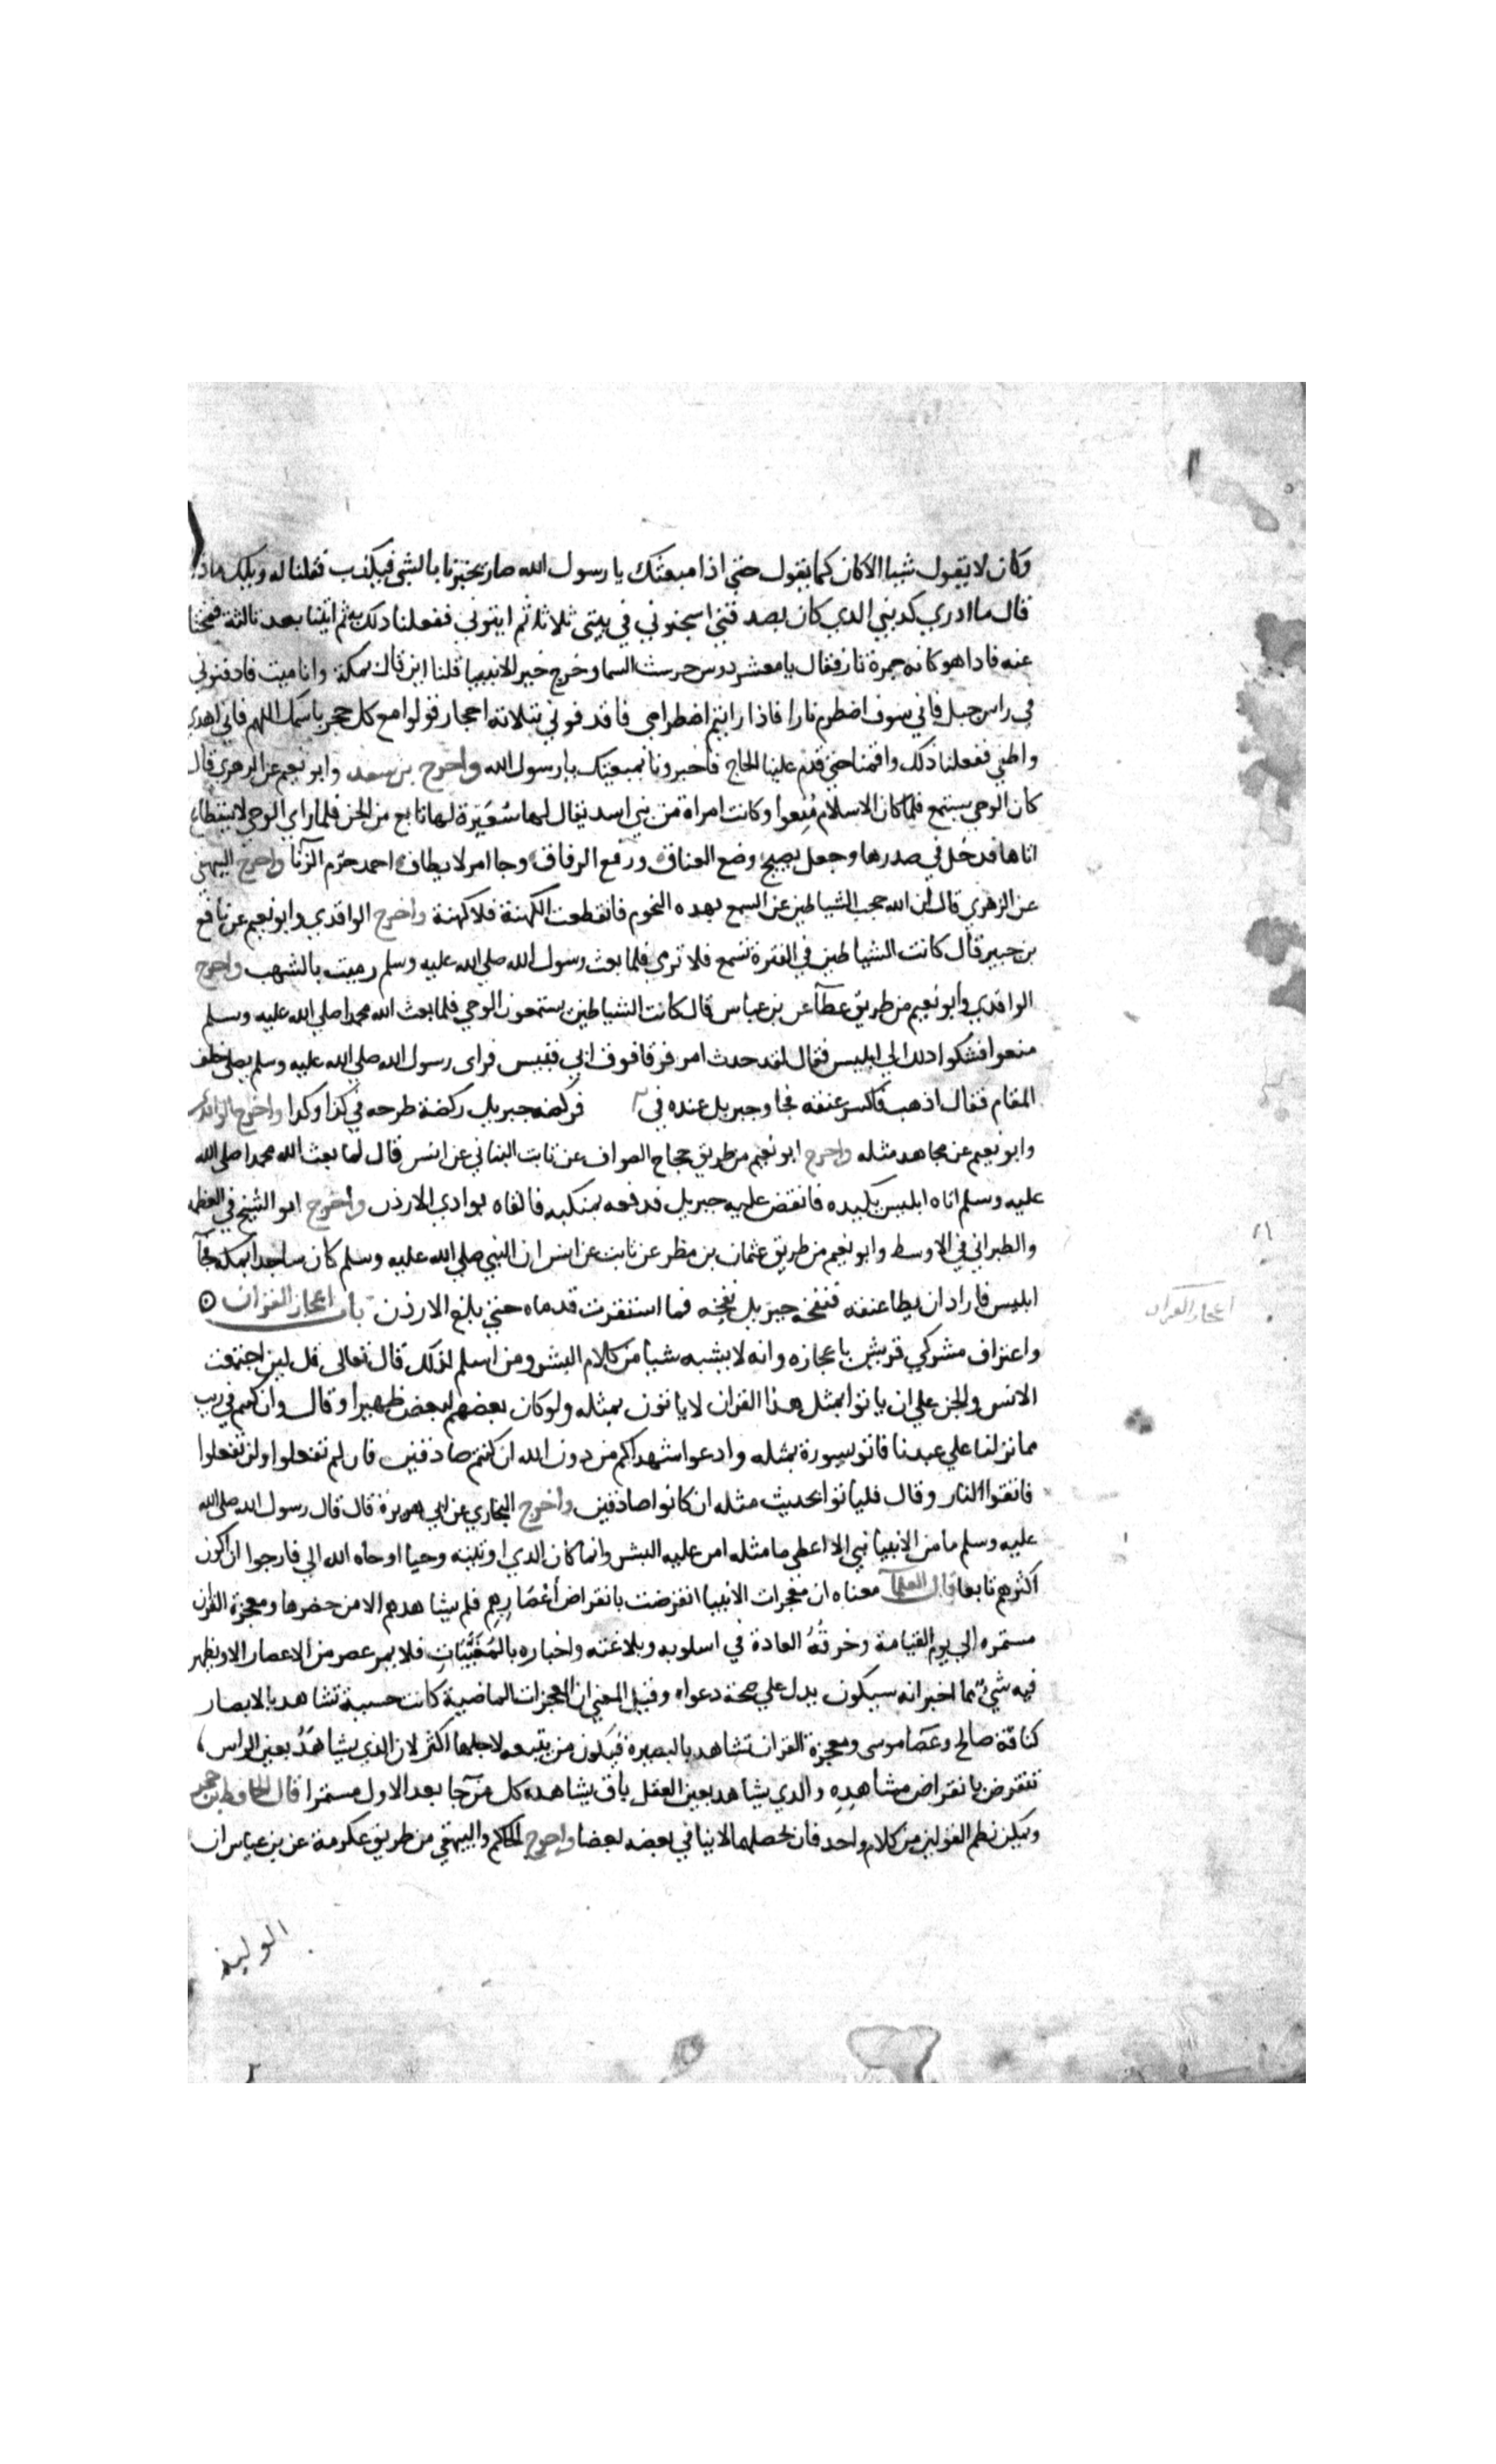 وكان لا يقول شيا الا كان كما يقول حتي اذا مبعثك يا رسول الله صار يخبرنا بالشي فيكذب فقلنا له ويلك ماذا
قال ما ادري كذبني الذي كان يصدقني اسجنوني في بيتي ثلاثا ثم ايتوني ففعلنا ذلك به ثم اتينا بعد ثالثة ففتحنا
عنه فاذا هو كانه جمرة نار فقال يا معشر دوس حرست السما وخرج خير الانبيا قلنا اين قال بمكة وانا ميت فادفنوني
في راس جبل فاني سوف اضطرم نارا فاذا رايتم اضطرامي فاقذفوني بثلاثة احجار قولوا مع كل حجر باسمك اللهم فاني اهدي
واطفي ففعلنا ذلك واقمنا حتي قدم علينا الحاج فاخبرونا بمبعثك يا رسول الله واخرج بن سعد وابو نعيم عن الزهري قال
كان الوحي يستمع فلما كان الاسلام مُنِعوا وكانت امراة من بني اسد يقال لها سُعَيرة لها تابع من الجن فلما راي الوحي لا يستطاع
اتاها فدخل في صدرها وجعل يصيح وضع العناق ورفع الرفاق وجا امر لا يطاق احمد حرّم الزنا واخرج البيهقي
عن الزهري قال ان الله حجب الشياطين عن السمع بهذه النجوم فانقطعت الكهنة فلا كهنة واخرج الواقدي وابو نعيم عن نافع
بن جبير قال كانت الشياطين في الفترة تسمع فلا ترمي فلما بعث رسول الله صلي الله عليه وسلم رميت بالشهب واخرج
الواقدي وابو نعيم من طريق عطآ عن بن عباس قال كانت الشياطين يستمعون الوحي فلما بعث الله محمدا صلي الله عليه وسلم
منعوا فشكوا ذلك الي ابليس فقال لقد حدث امر فرقا فوق ابي قبيس فراي رسول الله صلي الله عليه وسلم يصلي خلف
المقام فقال اذهب فاكسر عنقه فجا وجبريل عنده في فركضه جبريل ركضة طرحه في كذا وكذا واخرج الواقدي
وابو نعيم عن مجاهد مثله واخرج ابو نعيم من طريق حجاج الصواف عن ثابت البناني عن انس قال لما بعث الله محمدا صلي الله
عليه وسلم اتاه ابليس يكيده فانقض عليه جبريل فدفعه بمنكبه فالقاه بوادي الاردن واخرج ابو الشيخ في العظمة
والطبراني في الاوسط وابو نعيم من طريق عثمان بن مطر عن ثابت عن انس ان النبي صلي الله عليه وسلم كان ساجدا بمكة فجآ
ابليس فاراد ان يطا عنقه فنفخه جبريل نفخة فما استقرت قدماه حتي بلغ الاردن باب اعجاز القران
اعجاز القران
واعتراف مشركي قريش باعجازه وانه لا يشبه شيا من كلام البشر ومن اسلم لذلك قال تعالي قل لين اجتمعت
الانس والجن علي ان ياتوا بمثل هذا القران لا ياتون بمثله ولو كان بعضهم لبعض ظهيرا وقال وان كنتم في ريب
مما نزلنا علي عبدنا فاتوا بسورة بمثله وادعوا شهداكم من دون الله ان كنتم صادقين فان لم تفعلوا ولن تفعلوا
فاتقوا النار وقال فلياتوا بحديث مثله ان كانوا صادقين واخرج البخاري عن ابي هريرة قال قال رسول الله صلي الله
عليه وسلم ما من الانبيا نبي الا اعطي ما مثله امن عليه البشر وانما كان الذي اوتيته وحيا اوحاه الله الي فارجوا ان اكون
اكثرهم تابعا قال العلمآ معناه ان معجزات الانبيا انقرضت بانقراض أَعْصَارِهِم فلم يشاهدهم الا من حضرها ومعجزة القران
مستمره الي يوم القيامة وخرقُهُ العادة في اسلوبه وبلاغته واخباره بالمُغَيَّبَاتِ فلا يمر عصر من الاعصار الا ويظهر
فيه شي مما اخبر انه سيكون يدل علي صحة دعواه وقيل المعني ان المعجزات الماضية كانت حسية تشاهد بالابصار
كناقة صالح وعَصَا موسي ومعجزة القران تشاهد بالبصيرة فيكون من يتبعه لاجلها اكثر لان الذي يشاهَدُ بعين الراس
ينقرض بانقراض مشاهِدِهِ والذي يشاهد بعين العقل باق يشاهده كل من جا بعد الاول مستمرا قال الحافظ بن حجر
ويمكن نظم القولين من كلام واحد فان محصلهما لا ينافي بعضه بعضا واخرج الحاكم والبيهقي من طريق عكرمة عن بن عباس ان
الوليد